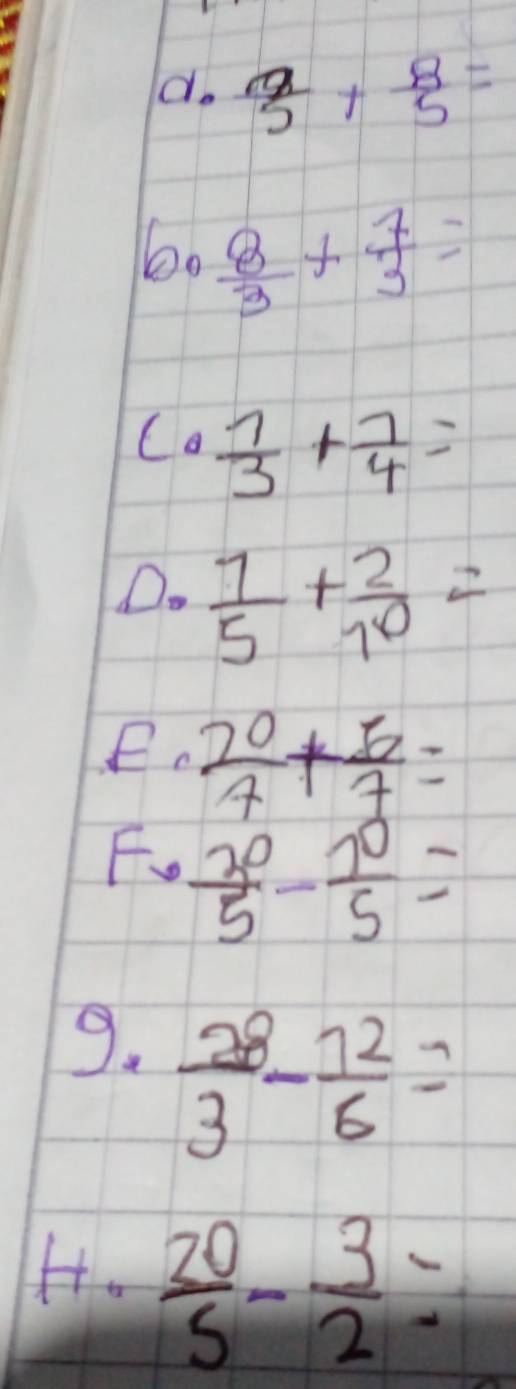 a. /5 + 8/5 =
b. 8/3 + 7/3 =
C. 1/3 + 1/4 =
D. 1/5 + 2/10 =
E. 20/7 + 5/7 =
F. 30/5 - 10/5 =
g. 28/3 - 12/6 =
H. 20/5 - 3/2 =